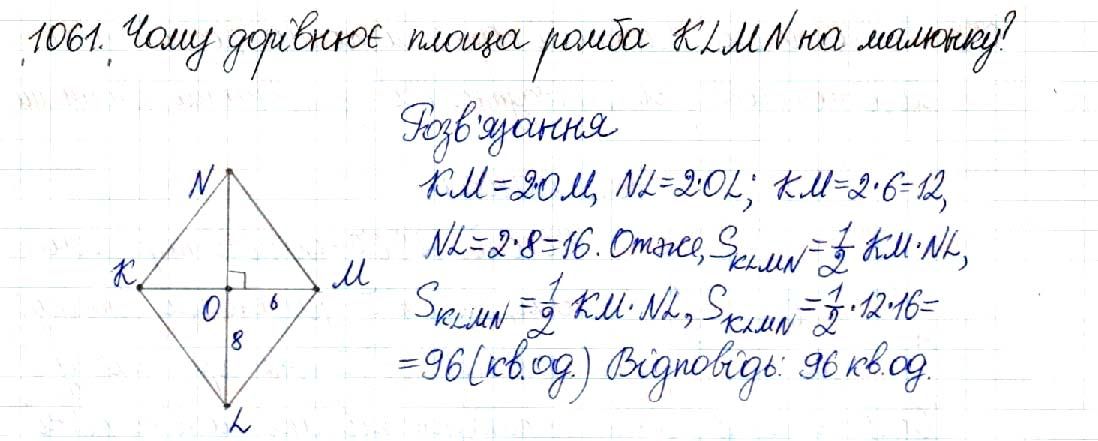 1061. Чому дорівнює площа ромба KLMN на малюнку?
Розв'язання
KM=2·OM, NL=2·OL; KM=2·6=12,
NL=2·8=16. Отже, S_KLMN=1/2 KM·NL,
S_KLMN=1/2 KM·NL, S_KLMN=1/2·12·16=
=96(кв.од.) Відповідь: 96 кв.од.
N
K
M
O
6
8
L